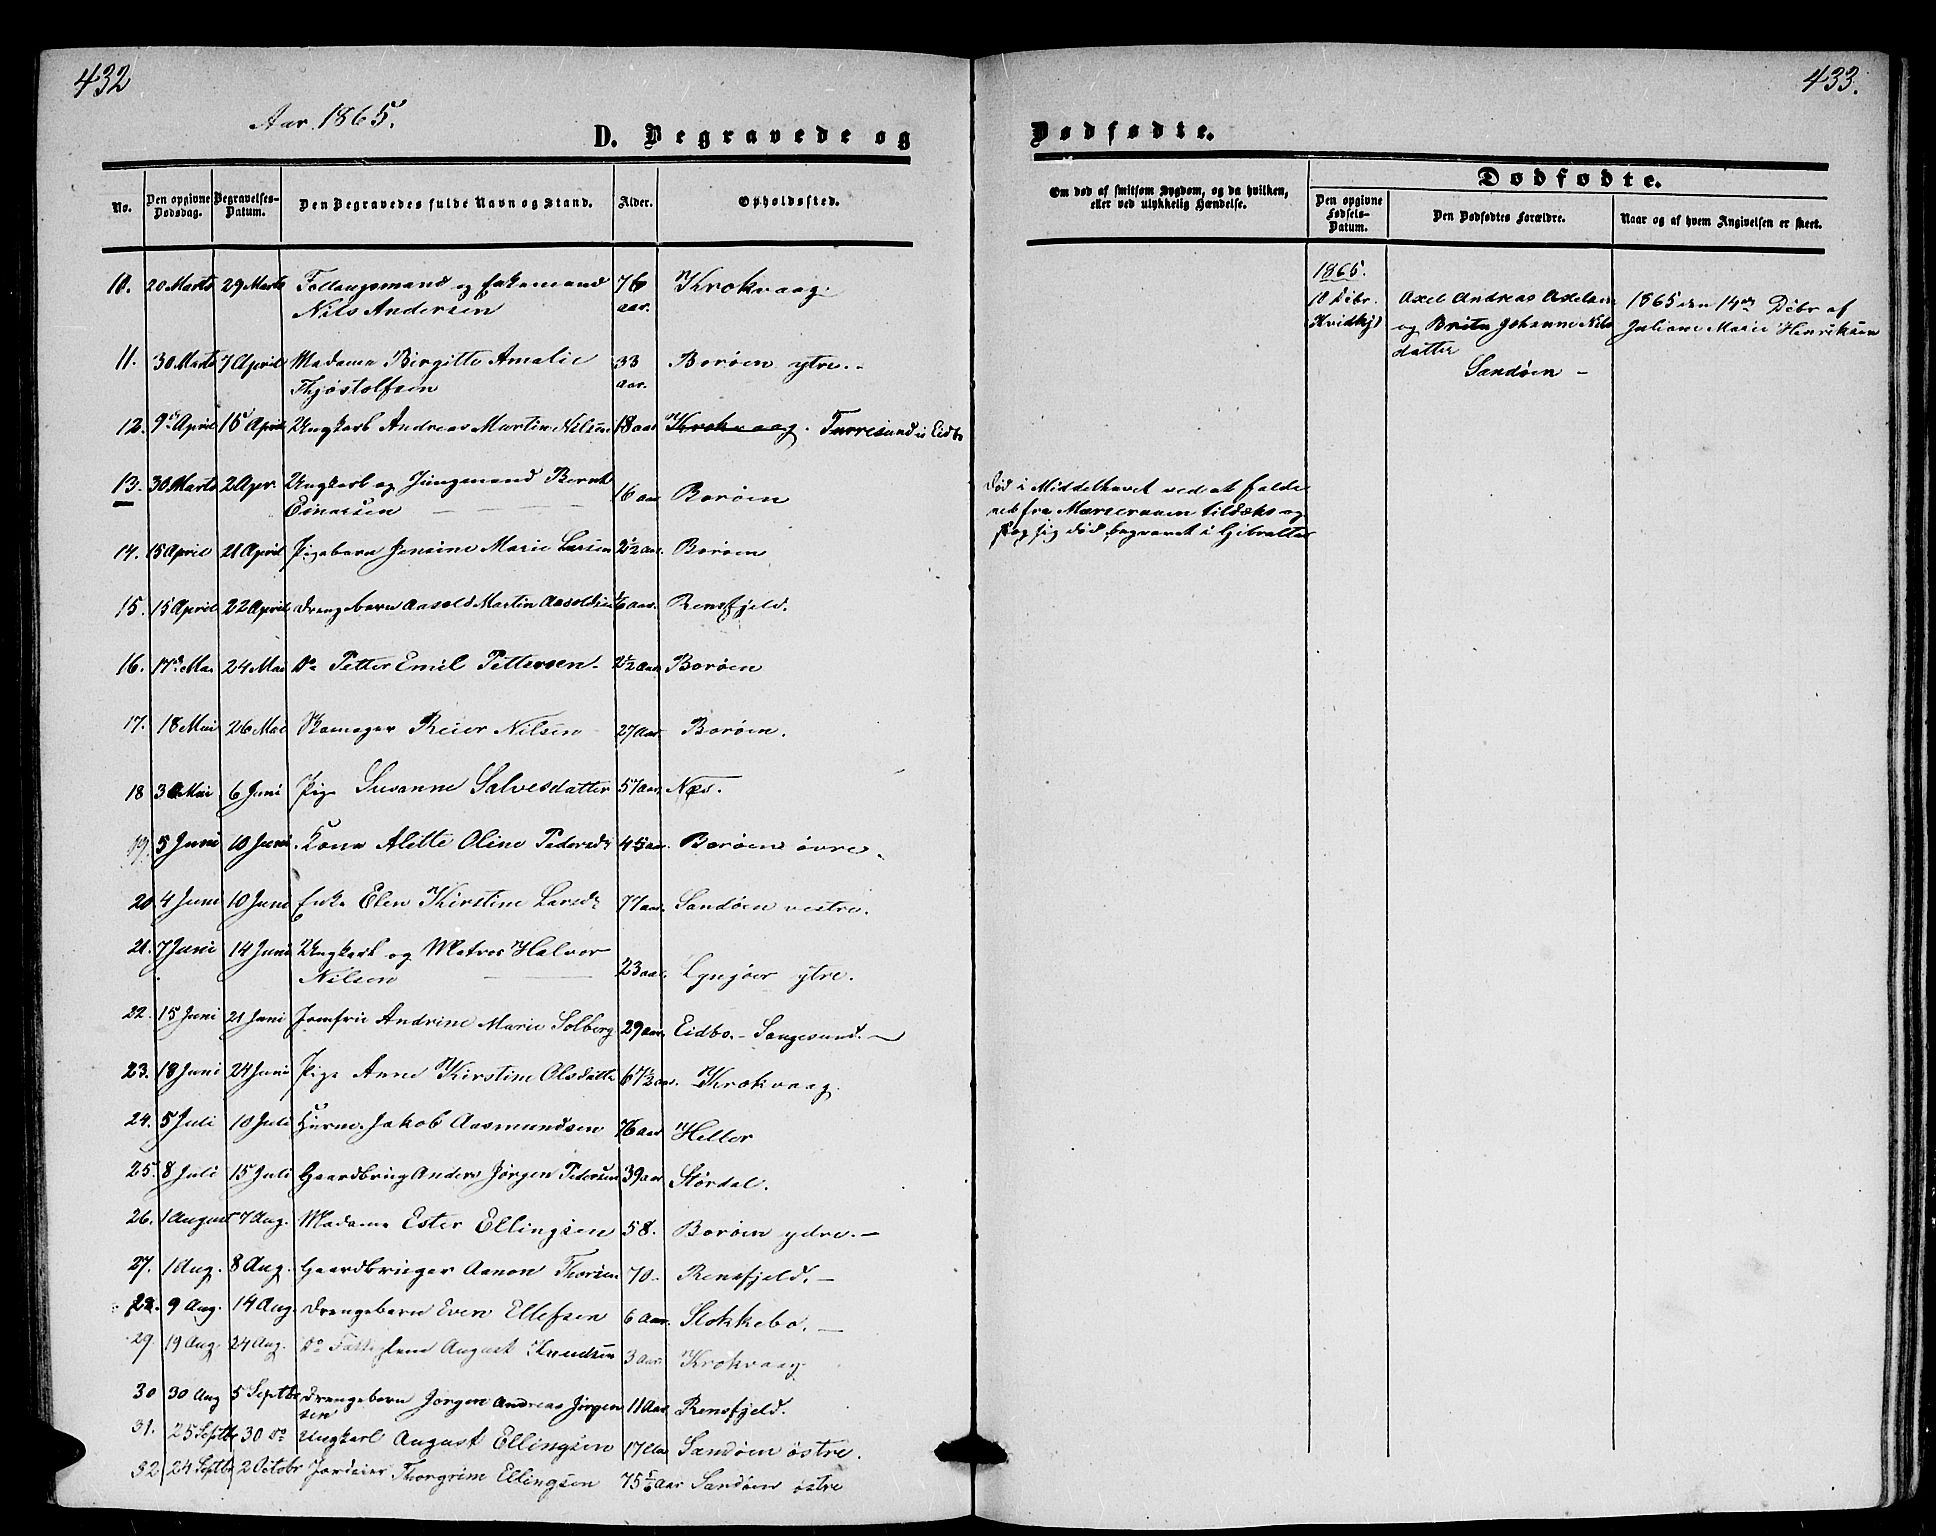 432
Aar 1865.
D. Begravede og
No.
Den opgivne Dødsdag.
Begravelses-Datum.
Den Begravedes fulde Navn og Stand.
Alder.
Opholdssted.
10. 20 Marts 29 Marts Føllaugsmand og Enkemand 76 Krokvaag.
Nils Andersen aar.
11. 30 Marts 7 April Madame Birgitte Amalie 33 Borøen ytre.
Thjøstolfsen aar.
12. 9de April 15 April Ungkarl Andreas Martin Nilsen 18 aar Krokvaag. Furresund i Eidbo
13. 30 Marts 2 Apr. Ungkarl og Jungmand Bernt
Einersen 16 aar Borøen
14. 15 April 21 April Pigebarn Jensine Marie Larsen 2½ aar Borøen
15. 15 April 22 April Drengebarn Aasold Martin Aasoldsen 6 aar. Rensfjeld.
16. 17de Mai 24 Mai Do Petter Emil Pettersen 2½ aar Borøen
17. 18 Mai 26 Mai Reier Nilsen 27 aar Borøen.
18 30 Mai 6 Juni Pige Susanne Salvesdatter 57 aar Næs.
19. 5 Juni 10 Juni Kone Alette Oline Pedersdr 45 aar. Borøen øvre.
20 4 Juni 10 Juni Enke Elen Kirstine Larsdr 77 aar. Sandøen vestre.
21. 7 Juni 14 Juni Ungkarl og Matros Halvor
Nilsen 23 aar. Lyngøer ytre.
22. 15 Juni 21 Juni Jomfru Andrine Marie Solberg 29 aar. Eidbo. - Sangesund.
23. 18 Juni 24 Juni Pige Anne Kirstine Olsdatter 67½ aar. Krokvaag.
24. 5 Juli 10 Juli Jakob Aasmundsen 76 aar Heller
25. 8 Juli 15 Juli Gaardbrug Anders Jørgen Pedersen 39 aar Størdal.
26. 1 August 7 Aug. Madame Ester Ellingsen 58. Borøen ydre.
27. 1 Aug. 8 Aug. Gaardbruger Aanon Thorsen 70 Rensfjeld.
28. 9 Aug. 14 Aug. Drengebarn Even Ellefsen 6 aar. Stokkebo.
29 19 Aug. 24 Aug. Do August Knudsen 3 aar. Krokvaag.
30 30 Aug 5 Septbr Drengebarn Jørgen Andreas Jørgen 11 Aar Rensfjeld.
sen
31. 25 Septb 30 do Ungkarl August Ellingsen 17 Aar Sandøen østre.
32 24 Septbr 2 Octobr Thorgrim Ellingsen 75 5/6 Aar Sandøen østre
433.
Dødfødte.
Om død af smitsom Sygdom, og da hvilken,
eller ved ulykkelig Hændelse.
Dødfødte.
Den opgivne Fødsels-Datum.
Den Dødfødtes Forældre.
Naar og af hvem Angivelsen er skeet.
død i Middelhavet ved at falde
ned fra Mærseraaen til Dæks og
slog sig død begravet i Gibraltar
1865.
10 Debr.
Axel Andreas Axelsen
og Brita Johanne Nils
datter
Sandøen -
1865 den 14de Debr af
Juliane Marie Henriksen